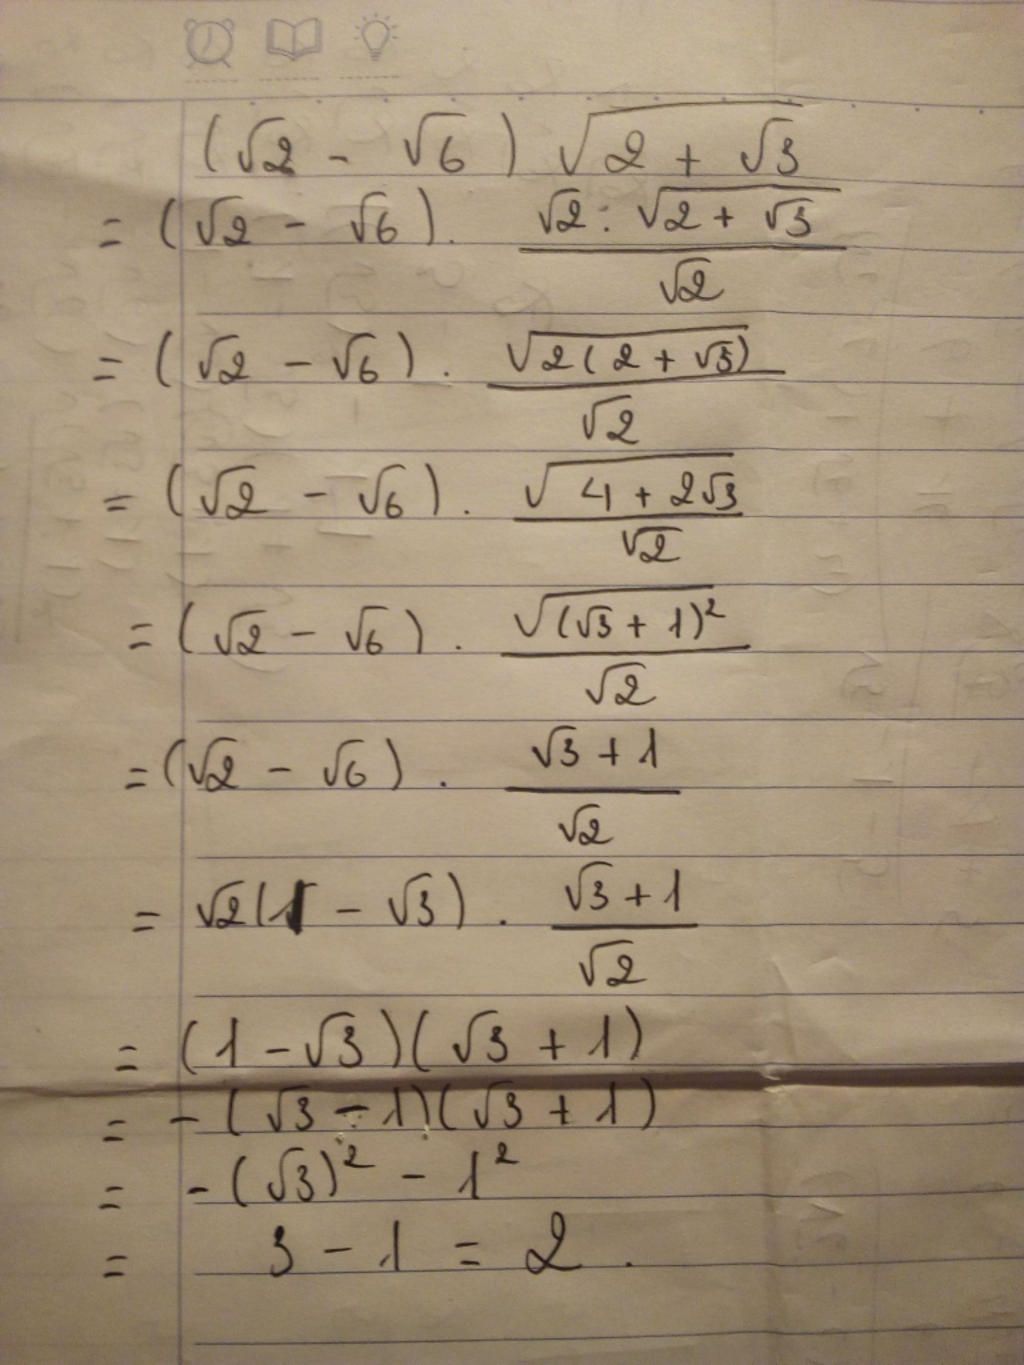 (√2 - √6) √(2 + √3)
= (√2 - √6) . (√2 : √(2 + √3))/√2
= (√2 - √6) . √(2(2 + √3))/√2
= (√2 - √6) . √(4 + 2√3)/√2
= (√2 - √6) . √((√3 + 1)²)/√2
= (√2 - √6) . (√3 + 1)/√2
= √2(1 - √3) . (√3 + 1)/√2
= (1 - √3)(√3 + 1)
= -(√3 - 1)(√3 + 1)
= -(√3)² - 1²
= 3 - 1 = 2.